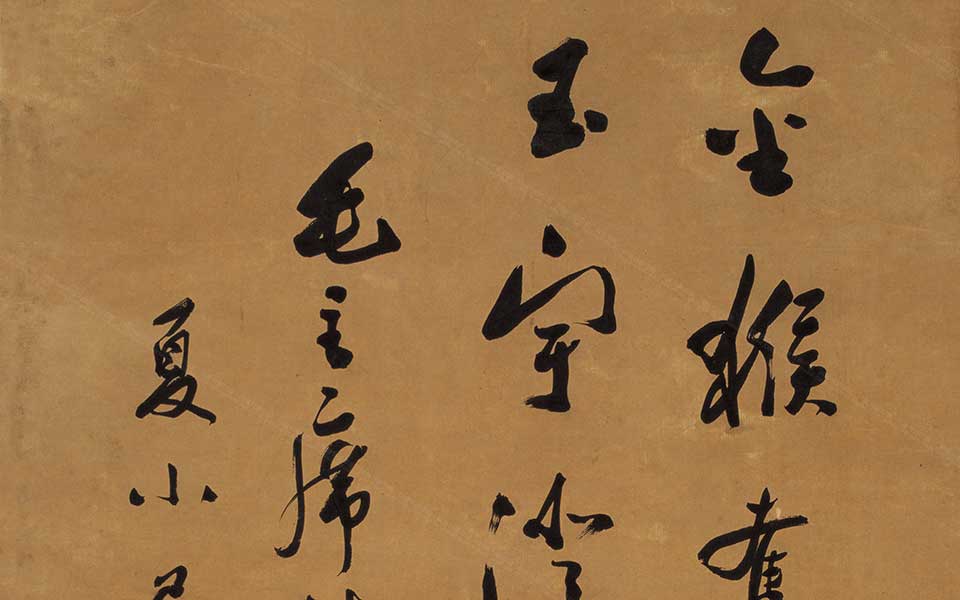 金猴奮
玉宇澄
毛主席
夏小